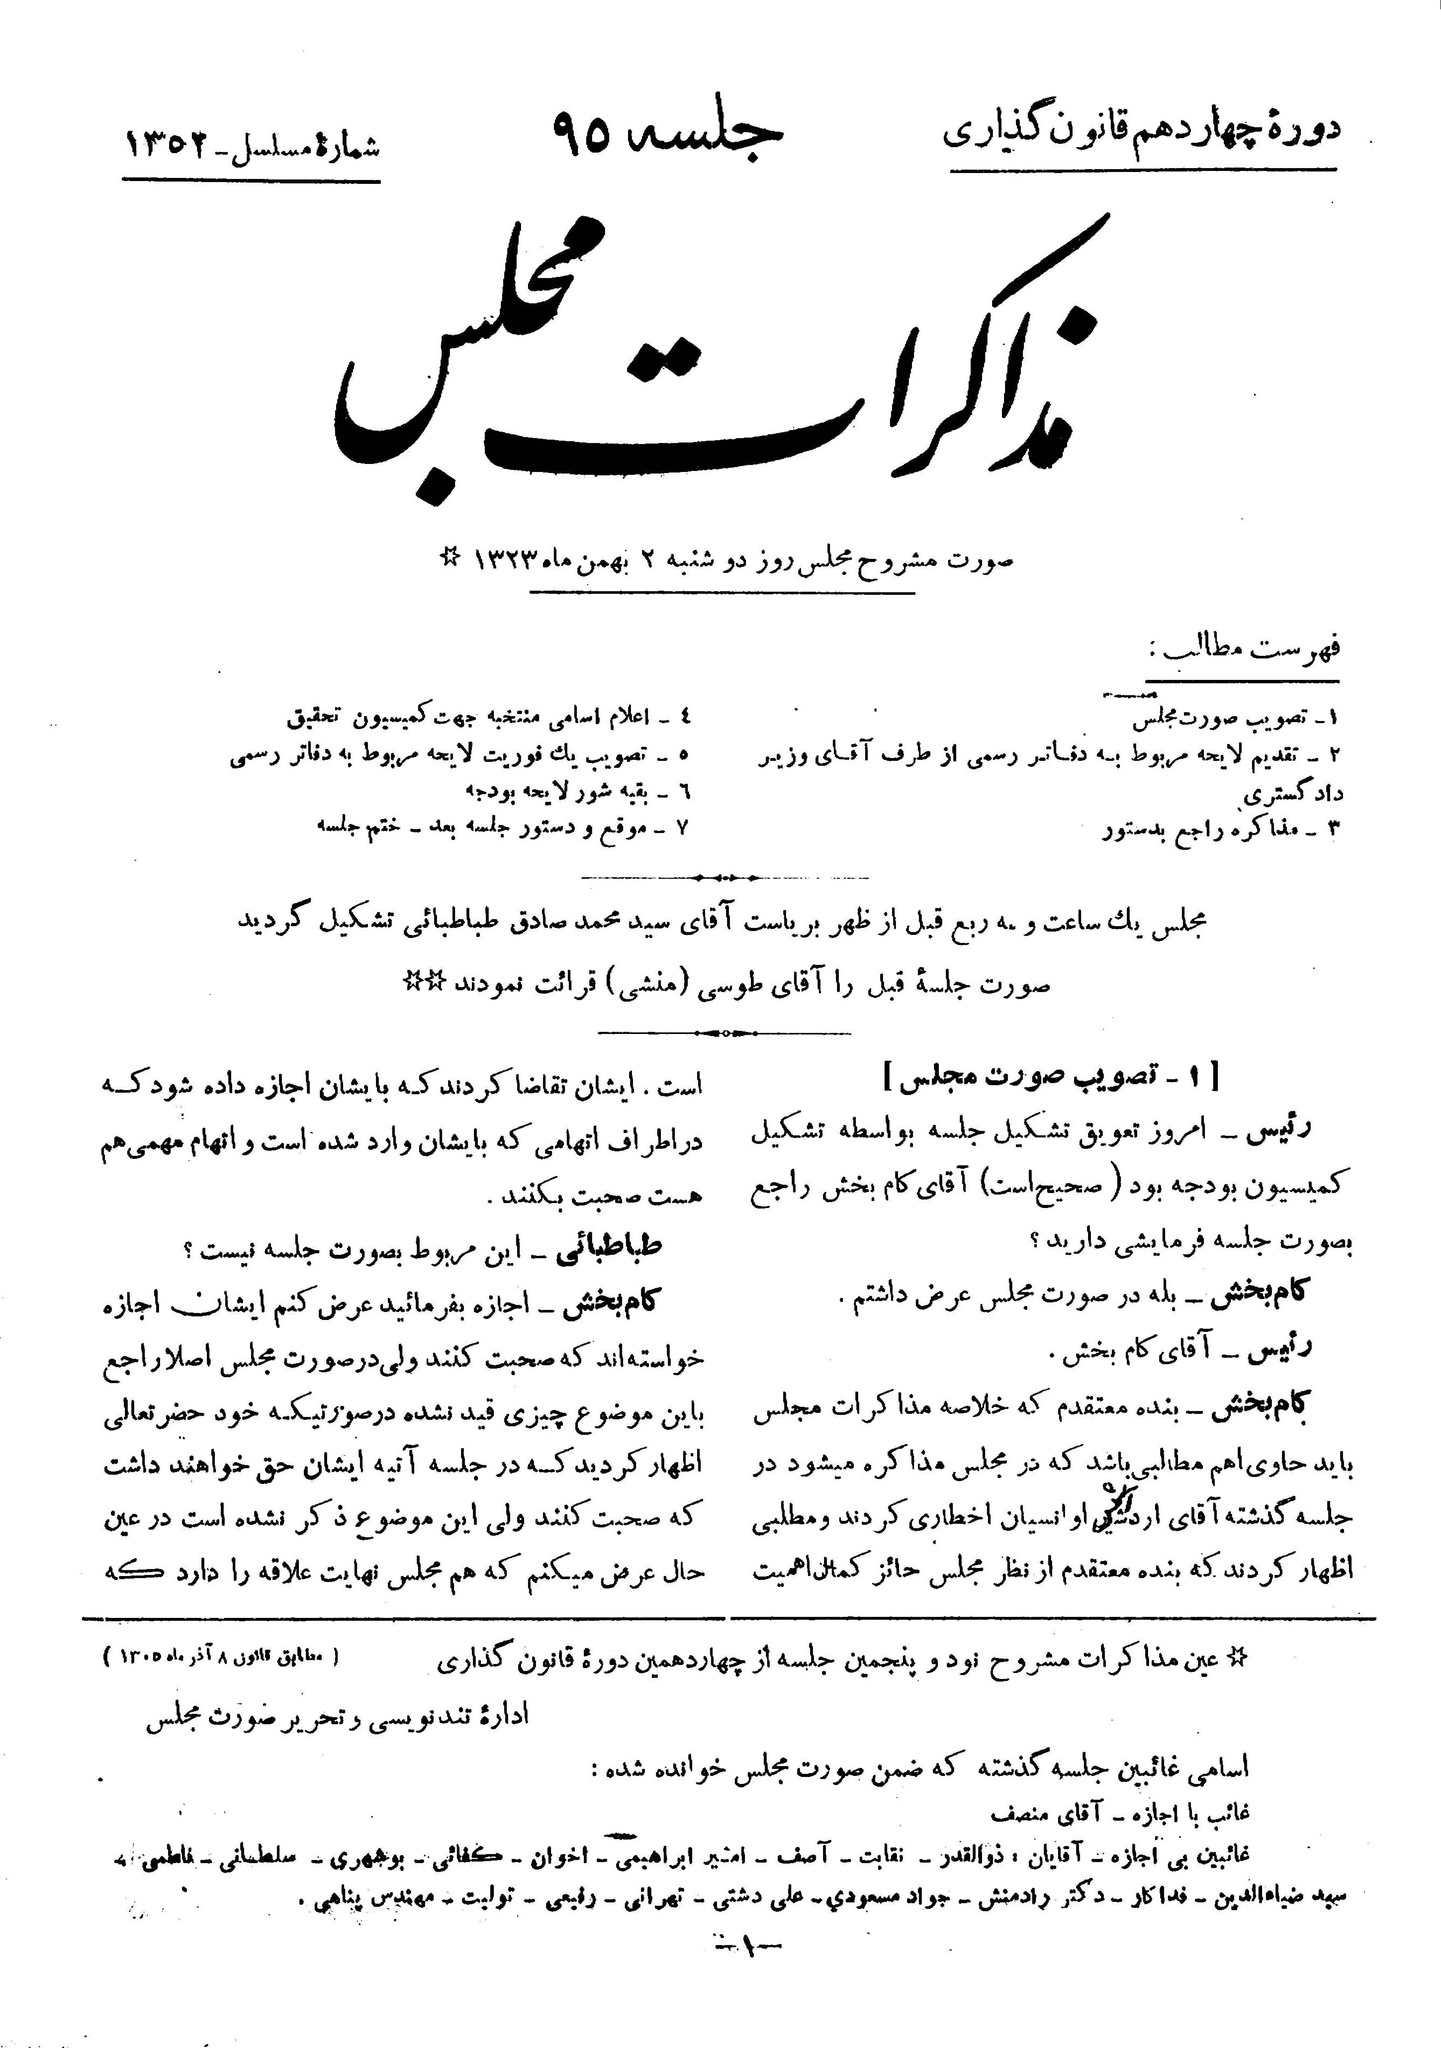 دورهٔ چهاردهم قانون گذاری
جلسه ۹۵
شمارهٔ مسلسل - ۱۳۵۲
مذاکرات مجلس
صورت مشروح مجلس روز دو شنبه ۲ بهمن ماه ۱۳۲۳ ☆
فهرست مطالب :
۱ - تصویب صورت مجلس
۲ - تقدیم لایحه مربوط به دفاتر رسمی از طرف آقای وزیر
دادگستری
۳ - مذاکره راجع بدستور
٤ - اعلام اسامی منتخبه جهت کمیسیون تحقیق
٥ - تصویب یك فوریت لایحه مربوط به دفاتر رسمی
٦ - بقیه شور لایحه بودجه
۷ - موقع و دستور جلسه بعد - ختم جلسه
مجلس یك ساعت و سه ربع قبل از ظهر بریاست آقای سید محمد صادق طباطبائی تشکیل گردید
صورت جلسهٔ قبل را آقای طوسی (منشی) قرائت نمودند ☆☆
[ ۱ - تصویب صورت مجلس ]
رئیس - امروز تعویق تشکیل جلسه بواسطه تشکیل
کمیسیون بودجه بود ( صحیح است) آقای کام بخش راجع
بصورت جلسه فرمایشی دارید ؟
کام بخش - بله در صورت مجلس عرض داشتم .
رئیس - آقای کام بخش .
کام بخش - بنده معتقدم که خلاصه مذاکرات مجلس
باید حاوی اهم مطالبی باشد که در مجلس مذاکره میشود در
جلسه گذشته آقای اردشیر اوانسیان اخطاری کردند و مطلبی
اظهار کردند که بنده معتقدم از نظر مجلس حائز کمال اهمیت
است . ایشان تقاضا کردند که بایشان اجازه داده شود که
در اطراف اتهامی که بایشان وارد شده است و اتهام مهمی هم
هست صحبت بکنند .
طباطبائی - این مربوط بصورت جلسه نیست ؟
کام بخش - اجازه بفرمائید عرض کنم ایشان اجازه
خواسته اند که صحبت کنند ولی در صورت مجلس اصلا راجع
باین موضوع چیزی قید نشده در صورتیکه خود حضرتعالی
اظهار کردید که در جلسه آتیه ایشان حق خواهند داشت
که صحبت کنند ولی این موضوع ذکر نشده است در عین
حال عرض میکنم که هم مجلس نهایت علاقه را دارد که
☆ عین مذاکرات مشروح نود و پنجمین جلسه از چهاردهمین دورهٔ قانون گذاری ( مطابق قانون ۸ آذر ماه ۱۳۰۵ )
ادارهٔ تند نویسی و تحریر صورت مجلس
اسامی غائبین جلسه گذشته که ضمن صورت مجلس خوانده شده :
غائب با اجازه - آقای منصف
غائبین بی اجازه - آقایان : ذوالقدر - نقابت - آصف - امیر ابراهیمی - اخوان - کفائی - بوشهری - سلطانی - فاطمی
سید ضیاءالدین - فداکار - دکتر رادمنش - جواد مسعودی - علی دشتی - تهرانی - رفیعی - تولیت - مهندس پناهی .
-۱-